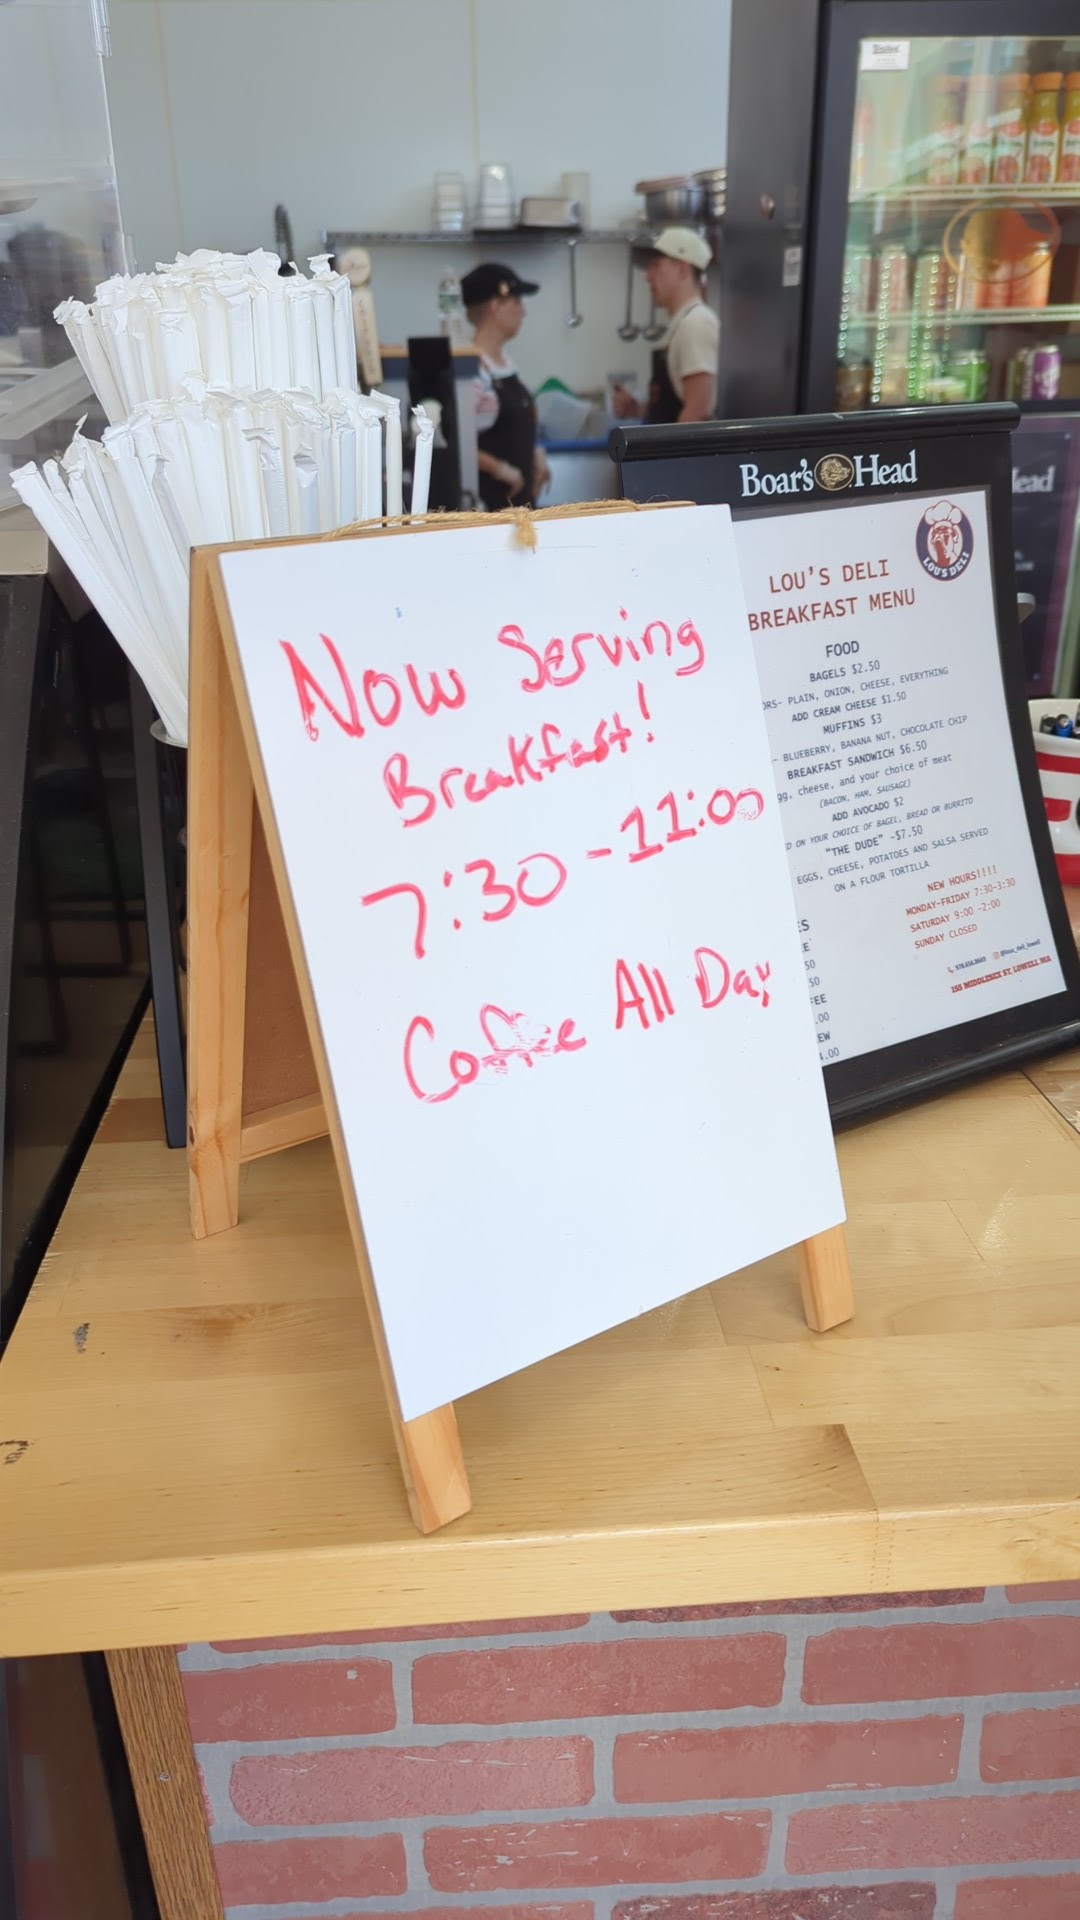 Now Serving
Breakfast!
7:30 - 11:00
Coffee All Day
Boar's Head
LOU'S DELI
LOU'S DELI
BREAKFAST MENU
FOOD
BAGELS $2.50
PLAIN, ONION, CHEESE, EVERYTHING
ADD CREAM CHEESE $1.50
MUFFINS $3
- BLUEBERRY, BANANA NUT, CHOCOLATE CHIP
BREAKFAST SANDWICH $6.50
cheese, and your choice of meat
(BACON, HAM, SAUSAGE)
ADD AVOCADO $2
ON YOUR CHOICE OF BAGEL, BREAD OR BURRITO
"THE DUDE" -$7.50
EGGS, CHEESE, POTATOES AND SALSA SERVED
ON A FLOUR TORTILLA
NEW HOURS!!!!
MONDAY-FRIDAY 7:30-3:30
SATURDAY 9:00 -2:00
SUNDAY CLOSED
155 MIDDLESEX ST, LOWELL MA